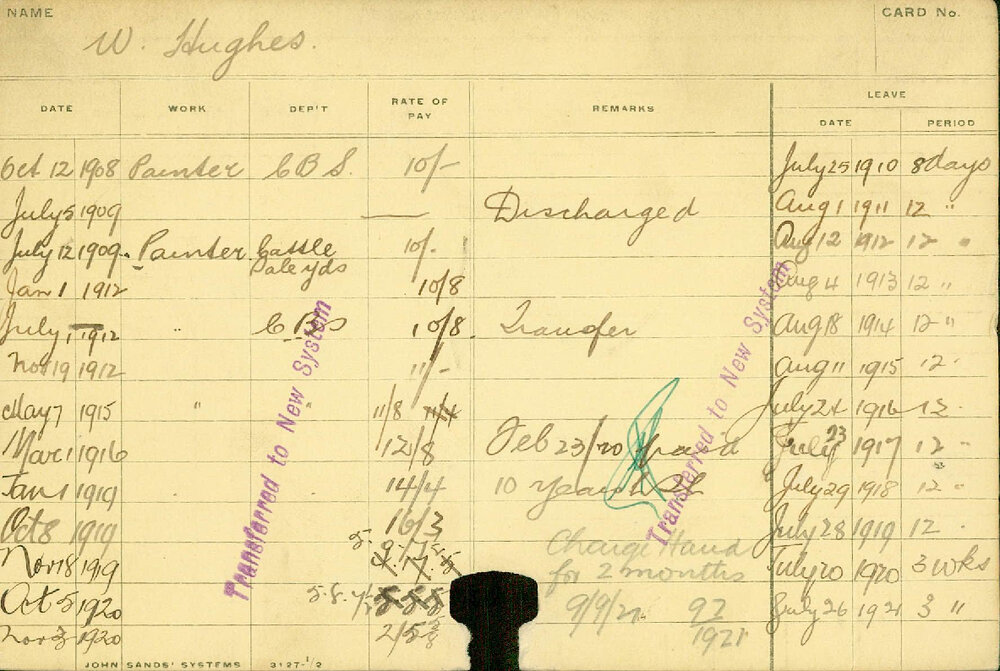 NAME
CARD No.
W. Hughes.
DATE WORK DEP'T RATE OF PAY REMARKS LEAVE
DATE PERIOD
Oct 12 1908 Painter C B S. 10/- July 25 1910 8 days
July 5 1909 — Discharged Aug 1 1911 12 "
July 12 1909. Painter Cattle Sale yds 10/- Aug 12 1912 12 "
Jan 1 1912 10/8 Aug 4 1913 12 "
July 1 1912 " C B S 10/8. Transfer Aug 18 1914 12 "
Nov 19 1912 11/- Aug 11 1915 12 "
May 7 1915 " " 11/8 11/4 July 24 1916 12 "
Mar 1 1916 12/8 Feb 23/20 paid July 23 1917 12 "
Jan 1 1919 14/4 10 years July 29 1918 12 "
Oct 8 1919 16/3 July 28 1919 12 "
Nov 18 1919 Charge Hand July 20 1920 3 wks
for 2 months
Oct 5 1920 9/9/21. 92 July 26 1921 3 "
Nov 1920 1921
Transferred to New System
Transferred to New System
JOHN SANDS' SYSTEMS 3127-1/2